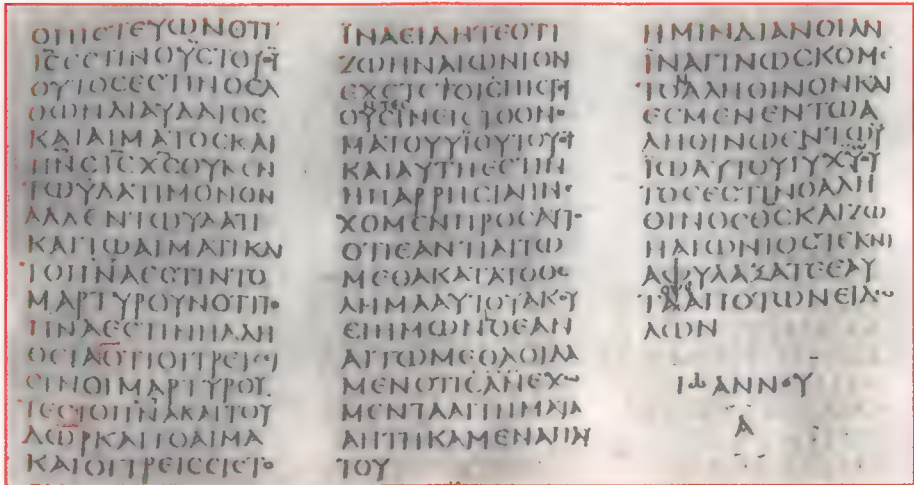 ΟΠΙϹΤΕΥΩΝΟΤΙ
ΙϹΕϹΤΙΝΟΥϹΤΟΥΘΥ
ΟΥΤΟϹΕϹΤΙΝΟΕΛ
ΘΩΝΔΙΑΥΔΑΤΟϹ
ΚΑΙΑΙΜΑΤΟϹΚΑΙ
ΠΝϹΙϹΧϹΟΥΚΕΝ
ΤΩΥΔΑΤΙΜΟΝΟΝ
ΑΛΛΕΝΤΩΥΔΑΤΙ
ΚΑΙΤΩΑΙΜΑΤΙΚΑΙ
ΤΟΠΝΑΕϹΤΙΝΤΟ
ΜΑΡΤΥΡΟΥΝΟΤΙΤΟ
ΠΝΑΕϹΤΙΝΗΑΛΗ
ΘΕΙΑΟΤΙΟΙΤΡΕΙϹΕΙ
ϹΙΝΟΙΜΑΡΤΥΡΟΥΝ
ΤΕϹΤΟΠΝΑΚΑΙΤΟΥ
ΔΩΡΚΑΙΤΟΑΙΜΑ
ΚΑΙΟΙΤΡΕΙϹΕΙϹΤΟ
ΪΝΑΕΙΔΗΤΕΟΤΙ
ΖΩΗΝΑΙΩΝΙΟΝ
ΕΧΕΤΕΤΟΙϹΠΙϹΤΕΥ
ΟΥϹΙΝΕΙϹΤΟΟΝΟ
ΜΑΤΟΥΥΪΟΥΤΟΥΘΥ
ΚΑΙΑΥΤΗΕϹΤΙΝ
ΗΠΑΡΡΗϹΙΑΗΝΕ
ΧΟΜΕΝΠΡΟϹΑΥΤΟ
ΟΤΙΕΑΝΤΙΑΙΤΩ
ΜΕΘΑΚΑΤΑΤΟΘΕ
ΛΗΜΑΑΥΤΟΥΑΚΟΥ
ΕΙΗΜΩΝ ΕΑΝ
ΑΙΤΩΜΕΘΑΟΙΔΑ
ΜΕΝΟΤΙΕΑΝΕΧΩ
ΜΕΝΤΑΑΙΤΗΜΑΤΑ
ΑΗΤΗΚΑΜΕΝΑΠΑΥ
ΤΟΥ
ΗΜΙΝΔΙΑΝΟΙΑΝ
ΪΝΑΓΙΝΩϹΚΟΜΕ
ΤΟΑΛΗΘΙΝΟΝΚΑΙ
ΕϹΜΕΝΕΝΤΩΑ
ΛΗΘΙΝΩΕΝΤΩΥ
ΪΩΑΥΤΟΥΙΥΧΥΟΥ
ΤΟϹΕϹΤΙΝΟΑΛΗ
ΘΙΝΟϹΘϹΚΑΙΖΩ
ΗΑΙΩΝΙΟϹΤΕΚΝΙ
ΑΦΥΛΑΞΑΤΕΕΑΥ
ΤΑΑΠΟΤΩΝΕΙΔΩ
ΛΩΝ
ΙΩΑΝΝΟΥ
Α